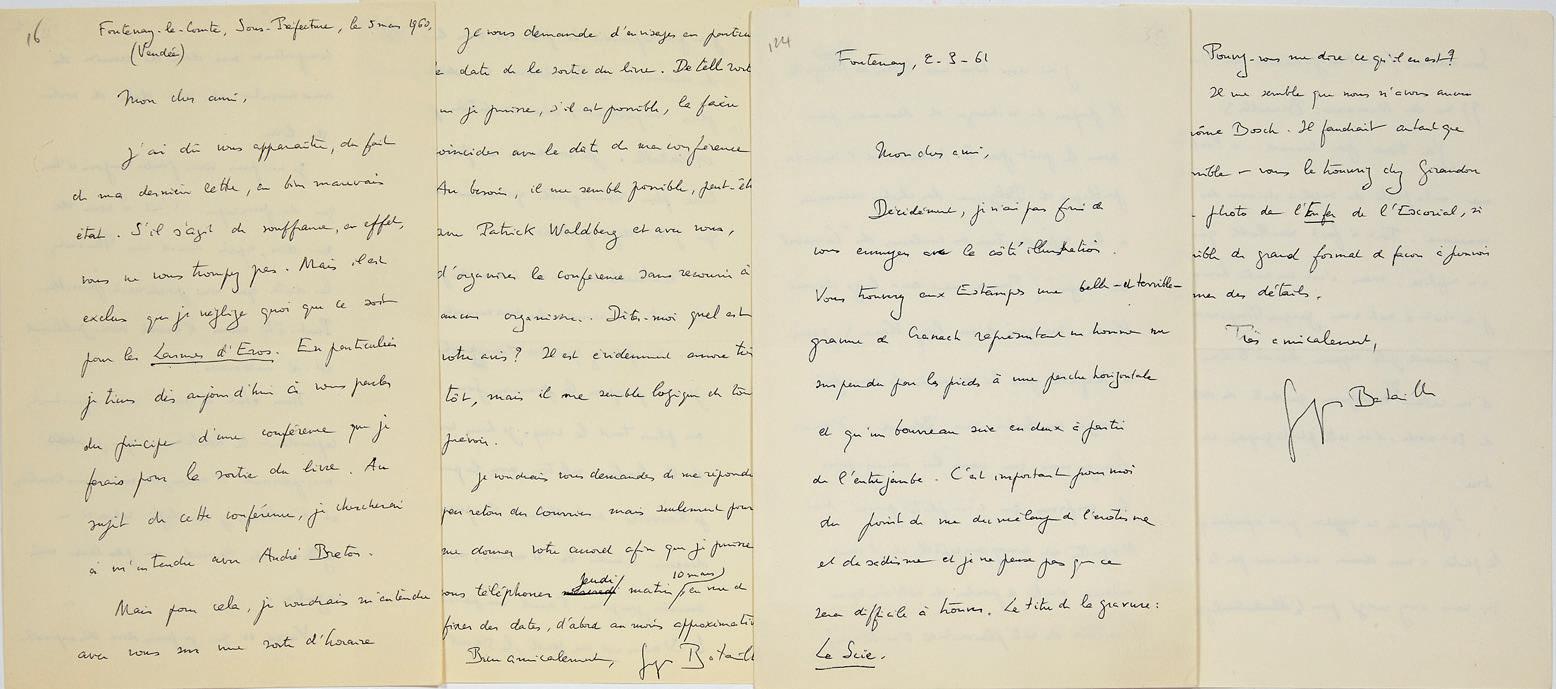 16
Fontenay-le-Comte, Sous-Préfecture, le 5 mars 1960,
(Vendée)
Mon cher ami,
J'ai dû vous apparaître, du fait
de ma dernière lettre, en bien mauvais
état. S'il s'agit de souffrance, en effet,
vous ne vous trompez pas. Mais il est
exclus que je néglige quoi que ce soit
pour les Larmes d'Eros. En particulier
je tiens dès aujourd'hui à vous parler
du principe d'une conférence que je
ferais pour la sortie du livre. Au
sujet de cette conférence, je chercherai
à m'entendre avec André Breton.
Mais pour cela, je voudrais m'entendre
avec vous sur une sorte d'horaire
Je vous demande d'envisager en particu
date de la sortie du livre. De telle sort
je puisse, s'il est possible, la faire
oincider avec la date de ma conférence
Au besoin, il me semble possible, peut-êt
avec Patrick Waldberg et avec vous,
d'organiser la conférence sans recourir à
aucun organisme. Dites-moi quel est
votre avis? Il est évidemment encore très
tôt, mais il me semble logique de tou
prévoir.
Je voudrais vous demander de me répondre
par retour du courrier mais seulement pour
me donner votre accord afin que je puisse
vous téléphoner jeudi matin 10 mars en vue de
fixer des dates, d'abord au moins approximati
Bien amicalement, Georges Bataille
124
Fontenay, 2-3-61
Mon cher ami,
Décidément, je n'ai pas fini de
vous ennuyer avec le côté illustration.
Vous trouverez aux Estampes une belle - et terrible -
gravure de Cranach représentant un homme nu
suspendu par les pieds à une perche horizontale
et qu'un bourreau scie en deux à partir
de l'entrejambe. C'est important pour moi
du point de vue du mélange de l'érotisme
et du sadisme et je ne pense pas que ce
sera difficile à trouver. Le titre de la gravure:
La Scie.
Pouvez-vous me dire ce qu'il en est?
Il me semble que nous n'avons aucun
rôme Bosch. Il faudrait autant que
ssible - vous le trouverez chez Giraudon
photo de l'Enfer de l'Escorial, si
ssible de grand format de façon à pouvoir
mer des détails.
Très amicalement,
Georges Bataille